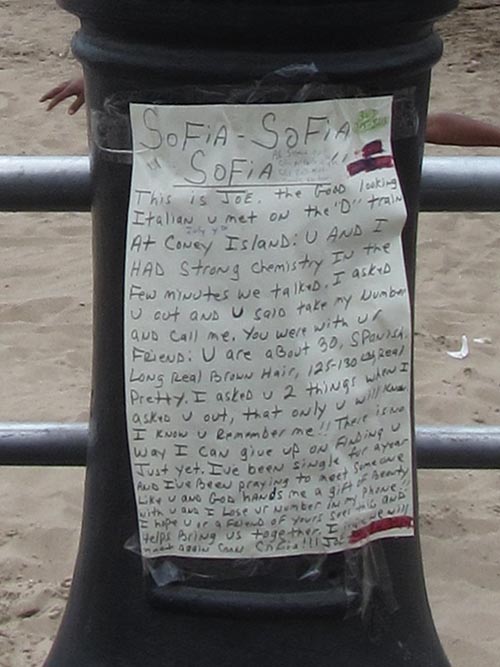 SoFiA - SoFiA
SoFiA
This is JOE. the Good looking
Italian u met on the "D" train
July 4th
At Coney Island: U AND I
HAD Strong Chemistry In the
Few minutes we talked. I asked
U out and U said take my Number
and call me. You were with ur
Friend: U are about 30, SPanish,
Long Real Brown Hair, 125-130 Real
Pretty. I asked u 2 things when I
asked u out, that only u will know
I know u Remember me!! There is no
way I can give up on Finding u
Just yet. I've been single for a year
AND I've Been praying to meet someone
Like u and God hands me a gift of Beauty
with u and I Lose ur Number in my Phone!!
I hope u or a Friend of yours see this and
Helps Bring us together. I we will
meet again